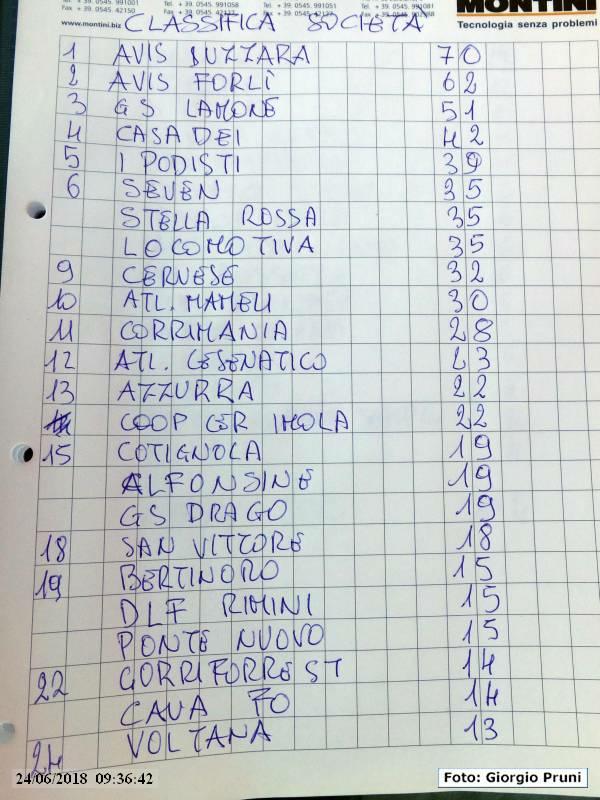 Tel. +39. 0545. 991001 Tel. +39. 0545. 991058 Tel. +39. 0545. 991051 Tel. +39. 0545. 991081
Fax +39. 0545. 42150
www.montini.biz
MONTINI
Tecnologia senza problemi
CLASSIFICA SOCIETÀ
1 AVIS SUZZARA 70
2 AVIS FORLÌ 62
3 GS LAMONE 51
4 CASADEI 42
5 I PODISTI 39
6 SEVEN 35
STELLA ROSSA 35
LOCOMOTIVA 35
9 CERVESE 32
10 ATL. MAMELI 30
11 CORRIMANIA 28
12 ATL. CESENATICO 23
13 AZZURRA 22
COOP CER IMOLA 22
15 COTIGNOLA 19
ALFONSINE 19
GS DRAGO 19
18 SAN VITTORE 18
19 BERTINORO 15
DLF RIMINI 15
PONTE NUOVO 15
22 CORRIFORREST 14
CAVA FO 14
24 VOLTANA 13
24/06/2018 09:36:42
Foto: Giorgio Pruni